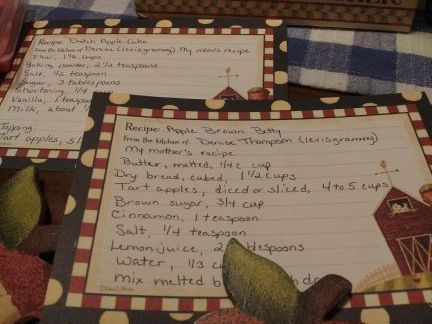 Recipe: Dutch Apple Cake
From the kitchen of Denise (levisgrammy) My mom's recipe
Flour, 1 1/2 cups
Baking powder, 2 1/2 teaspoons
Salt, 1/2 teaspoon
Sugar, 3 tablespoons
Shortening, 1/4
Vanilla, 1 teaspoon
Milk, about
Topping:
Tart apples, sl
Recipe: Apple Brown Betty
From the kitchen of Denise Thompson (levisgrammy)
My mother's recipe
Butter, melted, 1/4 c cup
Dry bread, cubed, 1 1/2 cups
Tart apples, diced or sliced, 4 to 5 cups
Brown sugar, 3/4 cup
Cinnamon, 1 teaspoon
Salt, 1/4 teaspoon
Lemon juice, 2 blespoons
Water, 1/3 c
mix melted b